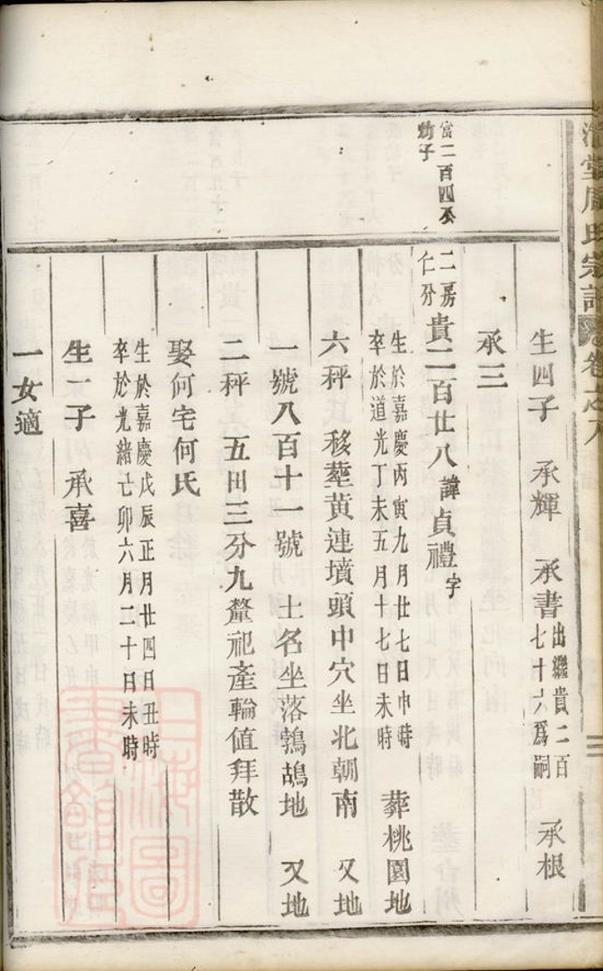 周氏宗譜 卷之八
三
生四子 承輝 承書 出繼貴二百七十六爲嗣 承根
承三
富二百四公幼子
二房仁分 貴二百廿八 諱貞禮 字
生於嘉慶丙寅九月廿七日巾時 卒於道光丁未五月十七日未時 葬桃園地
六秤 移塟黃連墳頭中穴坐北朝南 又地
一號八百十一號 土名坐落鶉鴣地 又地
二秤 五田三分九釐祀產輪值拜散
娶何宅何氏
生於嘉慶戊辰正月廿四日丑時 卒於光緒亡卯六月二十日未時
生一子 承喜
一女適
上海圖書館藏